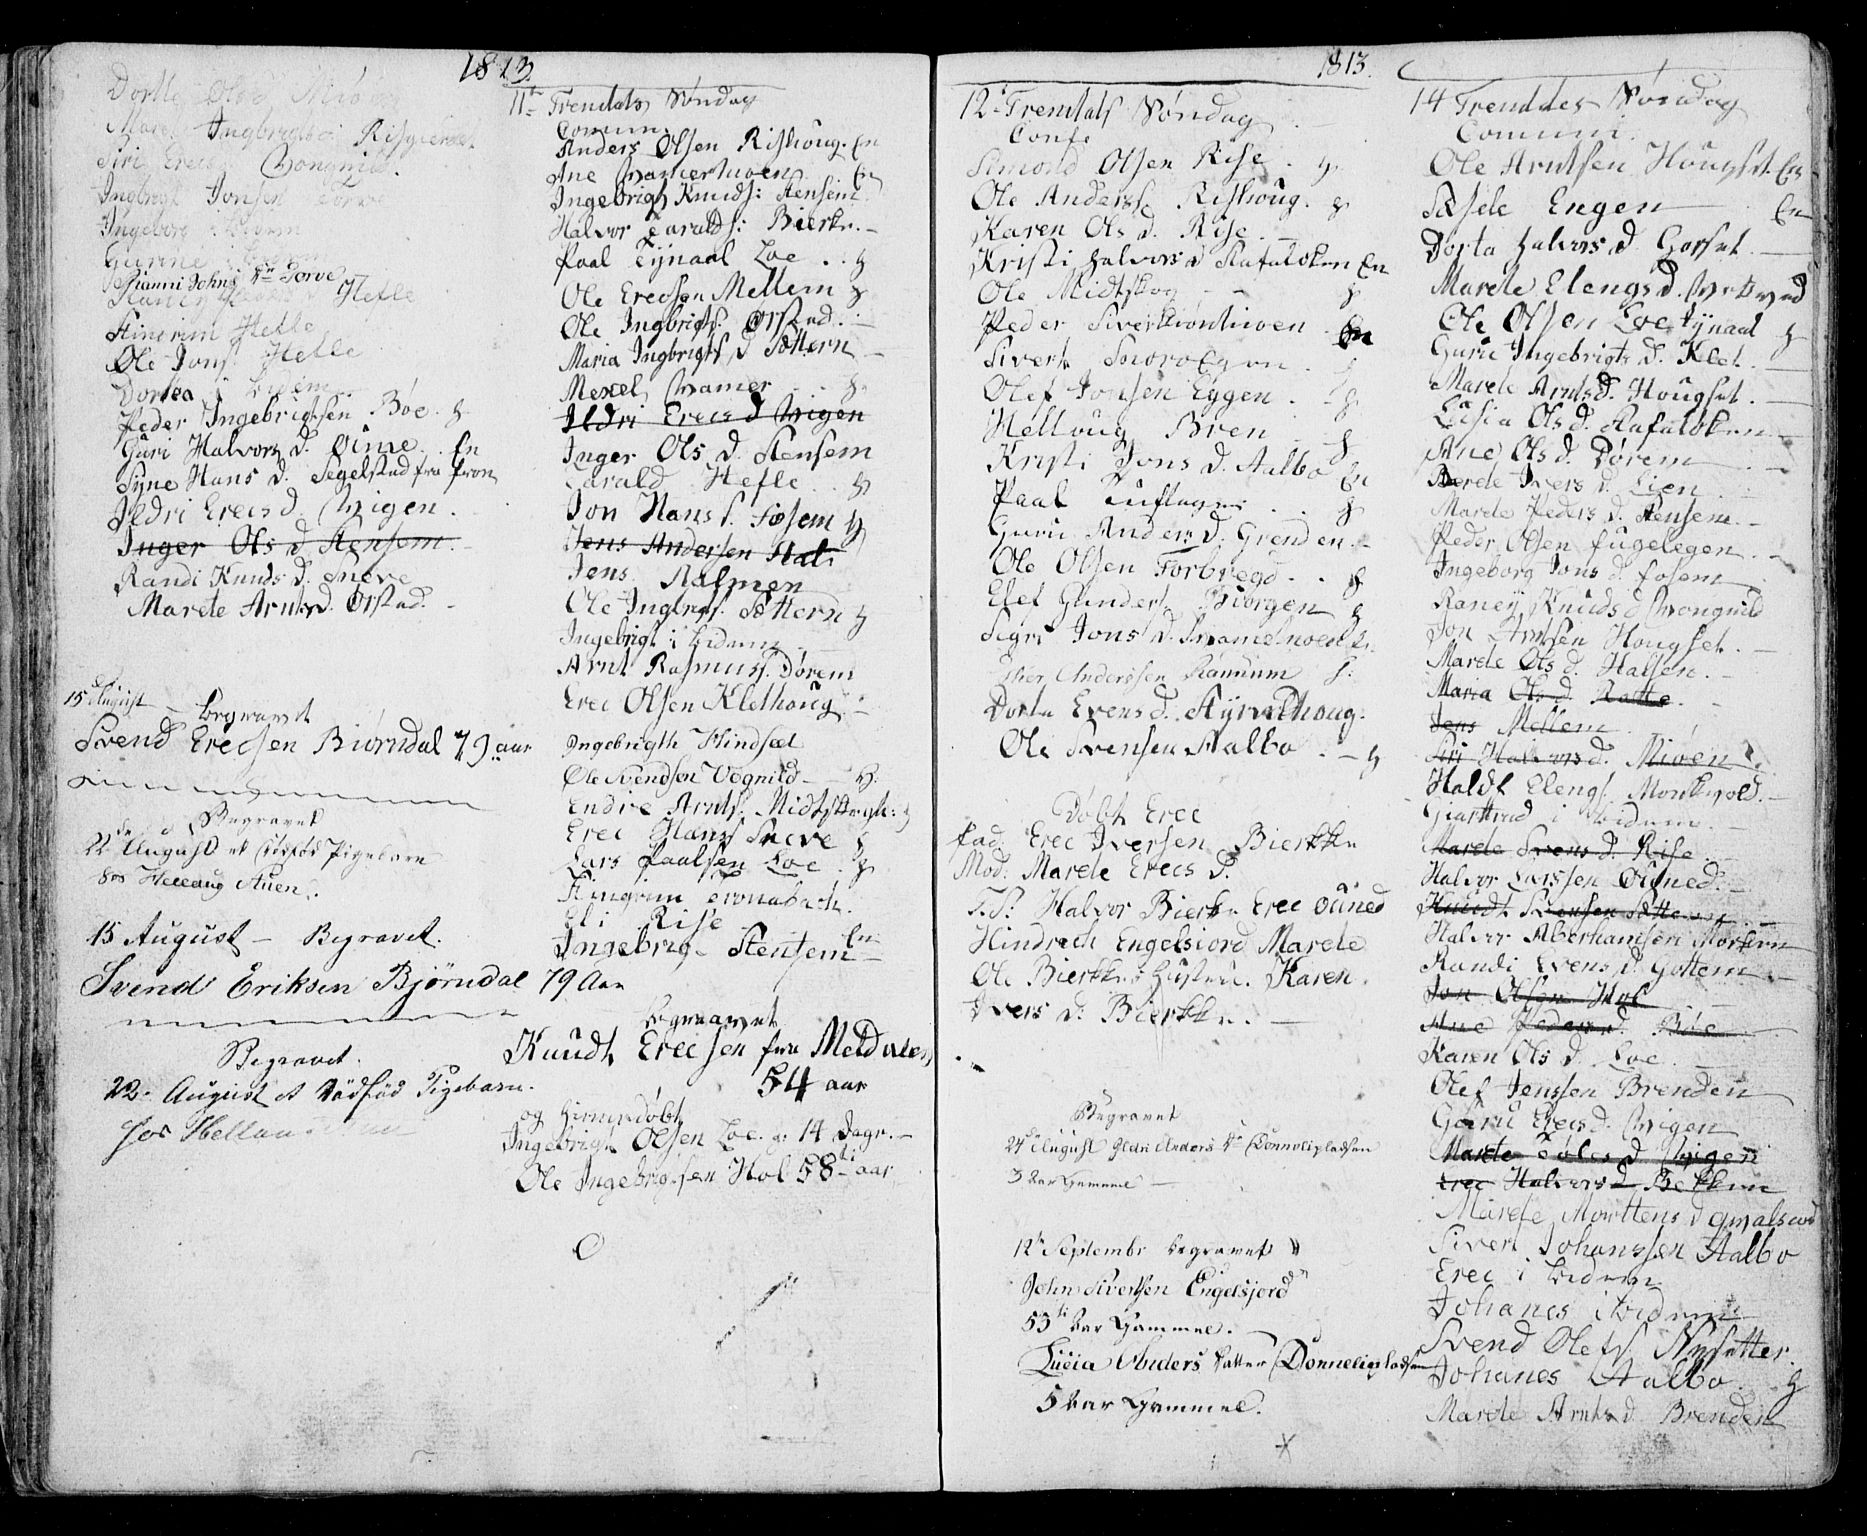 1813.
Dorte Ols d. Mioen
Maret Ingbrigts d. Risgierdet
Siri Erecs d. Vongnild.
Ingbrigt Jonsen Torve
Ingeborg ibidem
Gurine
Gianni Johns dr Torve
Raney Hefle
Stinerim Hefle
Ole Jons. Hefle
Dortea ibidem
Peder Ingebrigtsen Böe. g
Guri Halvors d. Oüne. En
Syne Hans d. Segelstad fra fron
Ildri Erecs d. Vigen.
Inger Ols d. Stensem.
Randi Knuds d. Sneve
Marete Arnts d. Ørstad.
15de August begravet
Svend Erecsen Biørndal 79 aar
Begravet
22de August et dødfød Pigebarn
hos Hellaug Auen.
15 August – Begravet.
Svend Eriksen Bjørndal 79 Aar
Begravet.
22. August et Dödföd Pigebarn.
hos Hellau
11te Trenitats Søndag
Comuni
Anders Olsen Rishoug. En
Ane Vamerhuoen En
Ingebrigt Knuds: Stensem
Halvor Taralds: Bierke.
Paal Tÿnaal Loe . . g
Ole Erecsen Mellem g
Ole Ingbrigts. Ørstad.
Maria Ingbrigts d Sættern
Mexel Vamer . . g.
Ildri Erecs d Vigen
Inger Ols D. Stensem
Tarald Hefle . g
Jon Hans s. Fosem g
Jens Andersen Hal
Jens Rasmen
Ole Ingbrgs. Sættern g
Ingebrigt i bidem
Arnt Rasmuss. Dørem
Erec Olsen Klethoug
Ingebrigth Hindsæt
Ole Svendsen Vognild g.
Endre Arnts. Midtskogh: g
Erec Hanss Sneve g
Lars Paalsen Loe . g
Fingrim Tronabach.
Eli Rise En
Ingebrig. Stensem
begravet
Knudt Erecsen fra Meldalen
54 aar
og hiemedøbt
Ingebrigt Olsen Loe. g: 14 Dage.
Ole Ingebrigtsen Hol 58te aar
1813.
12te Trenitats Søndag
Confe
Simond Olsen Rise . g.
Ole Anderss. Rishoug. g
Karen Ols d. Rise
Kristi halvors d Rafaloken En
Ole Midtskog g
Peder Sivertsvonhuoen En
Sivert Snoroegen
Olef Jonsen Eggen . g
Hellaug Bren . g
Kristi Jons D. Aalbo En
Paal Tuflager . . g
Guru Anders d. Grenden.
Ole Olsen Forbregd . . g
Elef Gunders. Biorgen g
Sigri Jons d. Vamerhuoen En
Iver Anderssen Rammum g.
Dorte Evens d. Stÿrvolthoug.
Ole Svensen Aalbo . g
Døbt Erec
fad: Erec Iversen Bierkke
Mod: Marete Erecs d.
F. S: Halvor Bierke Erec Oüned
Hindrech Engelsiord Marete
Ole Bierkkes hustru. Karen
Ivers d: Bierkke.
Begravet
24de August Anders dr Donneliepladsen
3 Aar Gammel
12te Septembr begravet
John Sivertsen Engelsjord
53de Aar Gammel.
Lucia Anders datter Donneliepladsen
5 Aar Gammel.
14 Trenitates Søndag
Comuni.
Ole Arntsen Hougset. En
Sæsele Engen En
Dorta halvors d. Gorset.
Marete Elengs d. Vrttved
Ole Olsen Loe Tÿnaal g
Guru Ingebrigts d. Klet.
Marete Arnts d. Hougset.
Lusia Ols d. Rafaloken
Ane Ols d. Dörem
Berete Ivers d. Lien
Marete Peders d. Stensem.
Peder Olsen fugelegen.
Ingeborg Jons d. fosem
Raneÿ Knuds d Vongnild
Jon Arntsen Hougset.
Marete Ols d. Halsen.
Maria Ols d. Ratte
Jens Mellem
Siri Halvors d. Mioen
Haldt Elengs. Monkvold.
Giærttrud i bidem
Marete Svens d. Rise
Halvor Larssen Oüned.
Knudt Svensen Sættern
Halvor Aberhamsen Morken
Randi Evens d. Gottem
Jon Olsen Hol
Ane Peders d. Böe
Karen Ols d. Loe
Olef Jenssen Brenden
Guru Erecs d. Vigen
Marete Toles d Vigen
Erec Halvors d Bekken
Marete Morttens d
Sivert Johanssen Aalbo
Erec i bidem
Johanes ibidem
Svend Olefs. Nÿsetter
Johanes Aalbo . g
Marete Arnts d. Brenden